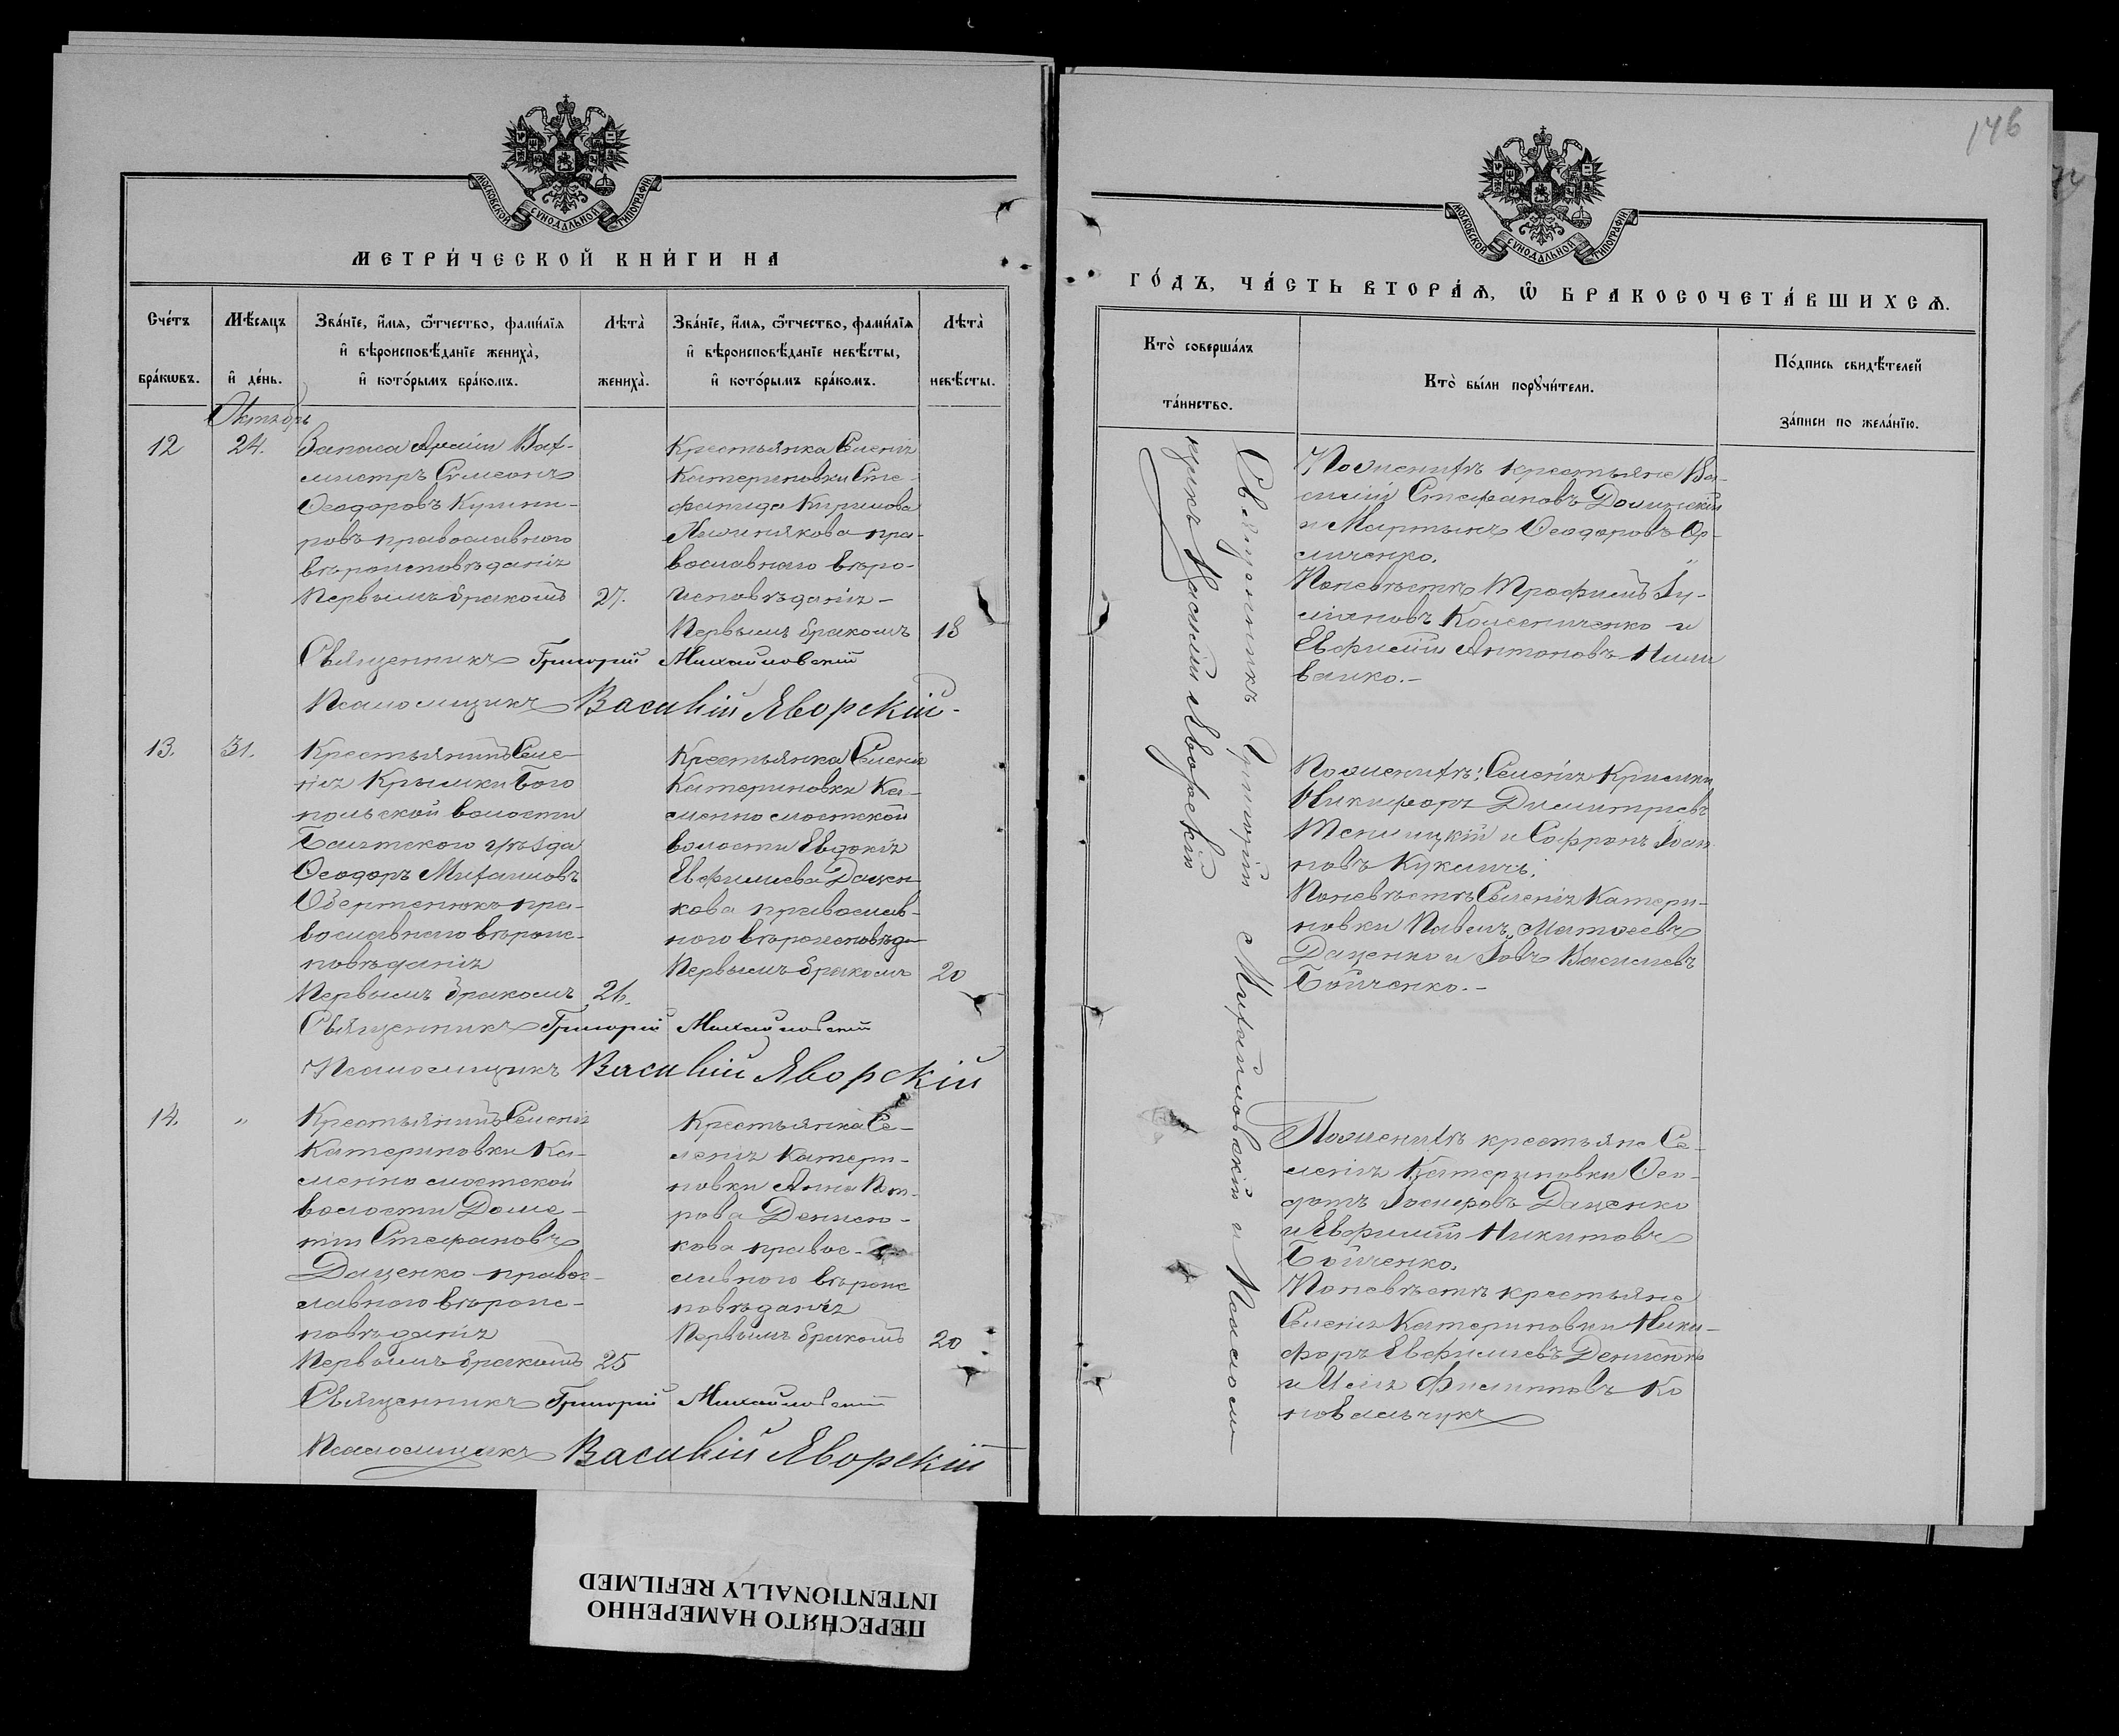 МОСКОВСКОЙ СУНОДАЛЬНОЙ ТИПОГРАФІИ.
МЕТРИ́ЧЕСКОЙ КНИ́ГИ НА
Сче́тъ бра́кωвъ.
Мѣ́сяцъ и҆ де́нь.
Зва́нїе, и҆́мя, ѻ҆́тчество, фами́лїя
и҆ вѣроисповѣ́данїе жениха̀,
и҆ кото́рымъ бра́комъ.
Лѣта̀ жениха̀.
Зва́нїе, и҆́мя, ѻ҆́тчество, фами́лїя
и҆ вѣроисповѣ́данїе невѣ́сты,
и҆ кото́рымъ бра́комъ.
Лѣта̀ невѣ́сты.
Октябрь
12
24.
Запаса Арміи Вах-
мистръ Симеонъ
Ѳеодоровъ
ровъ православного
вѣроисповѣданія
Первымъ бракомъ
27.
Крестьянка Селенія
Катериновки Сте-
фанида Кирилова
пра-
вославнаго вѣро-
исповѣданія –
Первымъ бракомъ
18
Священникъ Григорій Михайловскій
Псаломщикъ Василій Яворскій
13.
31.
Крестьянинъ Селе-
нія Крымки Бого
польской волости
Балтского уѣзда
Ѳеодоръ Михаиловъ
Обертенюкъ пра-
вославнаго вѣроис-
повѣданія
Первымъ бракомъ
26.
Крестьянка Селенія
Катериновки Ка-
менно мостской
волости Евдокія
Евфимиева Дацен
кова православ-
ного вѣроисповѣда-
Первымъ бракомъ
20
Священникъ Григорій Михайловскій
Псаломщикъ Василій Яворскій
14.
"
Крестьянинъ Селенія
Катериновки Ка-
менно мостской
волости Доме-
тій Стефановъ
Даценко правос-
лавного вѣроис-
повѣданія
Первымъ бракомъ
25
Крестьянка Се-
ленія Катери-
новки Анна Пет-
рова Денисю-
кова правос-
лавного вѣроис
повѣданія
Первымъ бракомъ
20
Священникъ Григорій Михайловскій
Псаломщикъ Василій Яворскій
146
МОСКОВСКОЙ СУНОДАЛЬНОЙ ТИПОГРАФІИ.
ГО́ДЪ, ЧА́СТЬ ВТОРА́Ѧ, Ѽ БРАКОСОЧЕТА́ВШИХСѦ.
Кто̀ соверша́лъ
та́инство.
Кто̀ бы́ли порꙋчи́тели.
По́дпись свидѣ́телей
за́писи по жела́нїю.
Священникъ Григорій Михайловскій и Псаломщ
щикъ Василій Яворскій
По женихѣ крестьяне Ва-
силій Стефановъ Долинскій
и Мартынъ Ѳеодоровъ Ор-
личенко.
По невѣстѣ Трофимъ Іу-
ліановъ Колесниченко и
Евфимій Антоновъ Нали
вайко. –
По женихѣ: Селенія Крымки
Никифоръ Димитріевъ
Теплицкій и Софронъ Іоан
новъ
По невѣстѣ Селенія Катери-
новки Павелъ Матѳеевъ
Даценко и Іовъ Василіевъ
Бойченко. –
По женихѣ крестьяне Се-
ленія Катериновки Ѳео-
дотъ Іосифовъ Даценко
и Евфимій Никитовъ
Бойченко.
По невѣстѣ крестьяне
Селенія Катериновки Ники-
форъ Евфиміевъ Денисюкъ
и Илія Филипповъ Ко
новальчукъ
ПЕРЕСНЯТО НАМЕРЕННО
INTENTIONALLY REFILMED